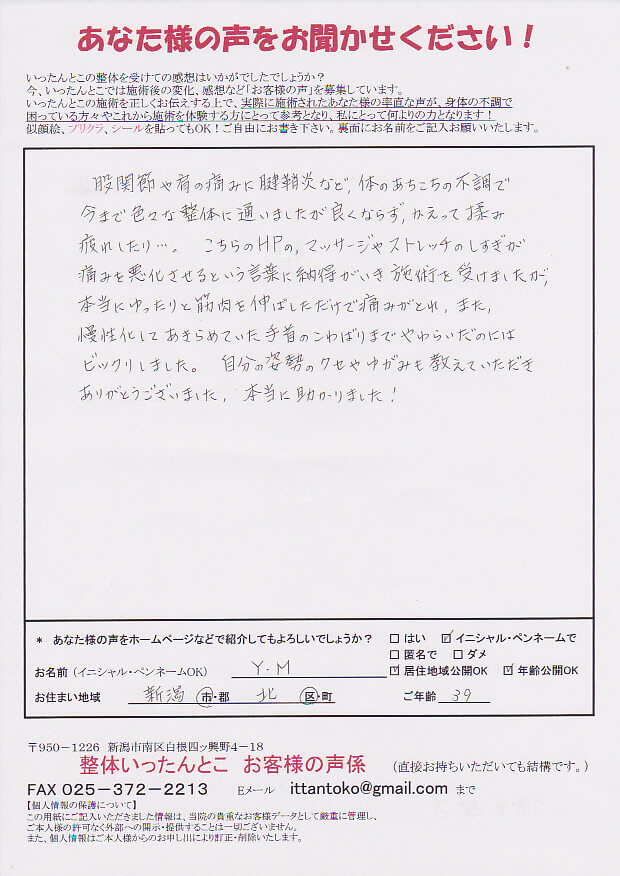 あなた様の声をお聞かせください！
いったんとこの整体を受けての感想はいかがでしたでしょうか？
今、いったんとこでは施術後の変化、感想など「お客様の声」を募集しています。
いったんとこの施術を正しくお伝えする上で、実際に施術されたあなた様の率直な声が、身体の不調で
困っている方々やこれから施術を体験する方にとって参考となり、私にとって何よりの力となります！
似顔絵、プリクラ、シールを貼ってもOK！ご自由にお書き下さい。裏面にお名前をご記入お願いいたします。
股関節や肩の痛みに腱鞘炎など、体のあちこちの不調で
今まで色々な整体に通いましたが良くならず、かえって揉み
疲れしたり…。 こちらのHPの、マッサージやストレッチのしすぎが
痛みを悪化させるという言葉に納得がいき施術を受けましたが、
本当にゆったりと筋肉を伸ばしただけで痛みがとれ、また、
慢性化してあきらめていた手首のこわばりまでやわらいだのには
ビックリしました。 自分の姿勢のクセやゆがみも教えていただき
ありがとうございました。本当に助かりました！
* あなた様の声をホームページなどで紹介してもよろしいでしょうか？ □ はい ☑ イニシャル・ペンネームで
□ 匿名で □ ダメ
お名前（イニシャル・ペンネームOK） Y.M ☑ 居住地域公開OK ☑ 年齢公開OK
お住まい地域 新潟 市・郡 北 区・町 ご年齢 39
〒950－1226 新潟市南区白根四ッ興野4－18
整体いったんとこ お客様の声係 （直接お持ちいただいても結構です。）
FAX 025－372－2213 Eメール ittantoko@gmail.com まで
【個人情報の保護について】
この用紙にご記入いただきました情報は、当院の貴重なお客様データとして厳重に管理し、
ご本人様の許可なく外部への開示・提供することは一切ございません。
また、個人情報はご本人様からのお申し出により訂正・削除いたします。